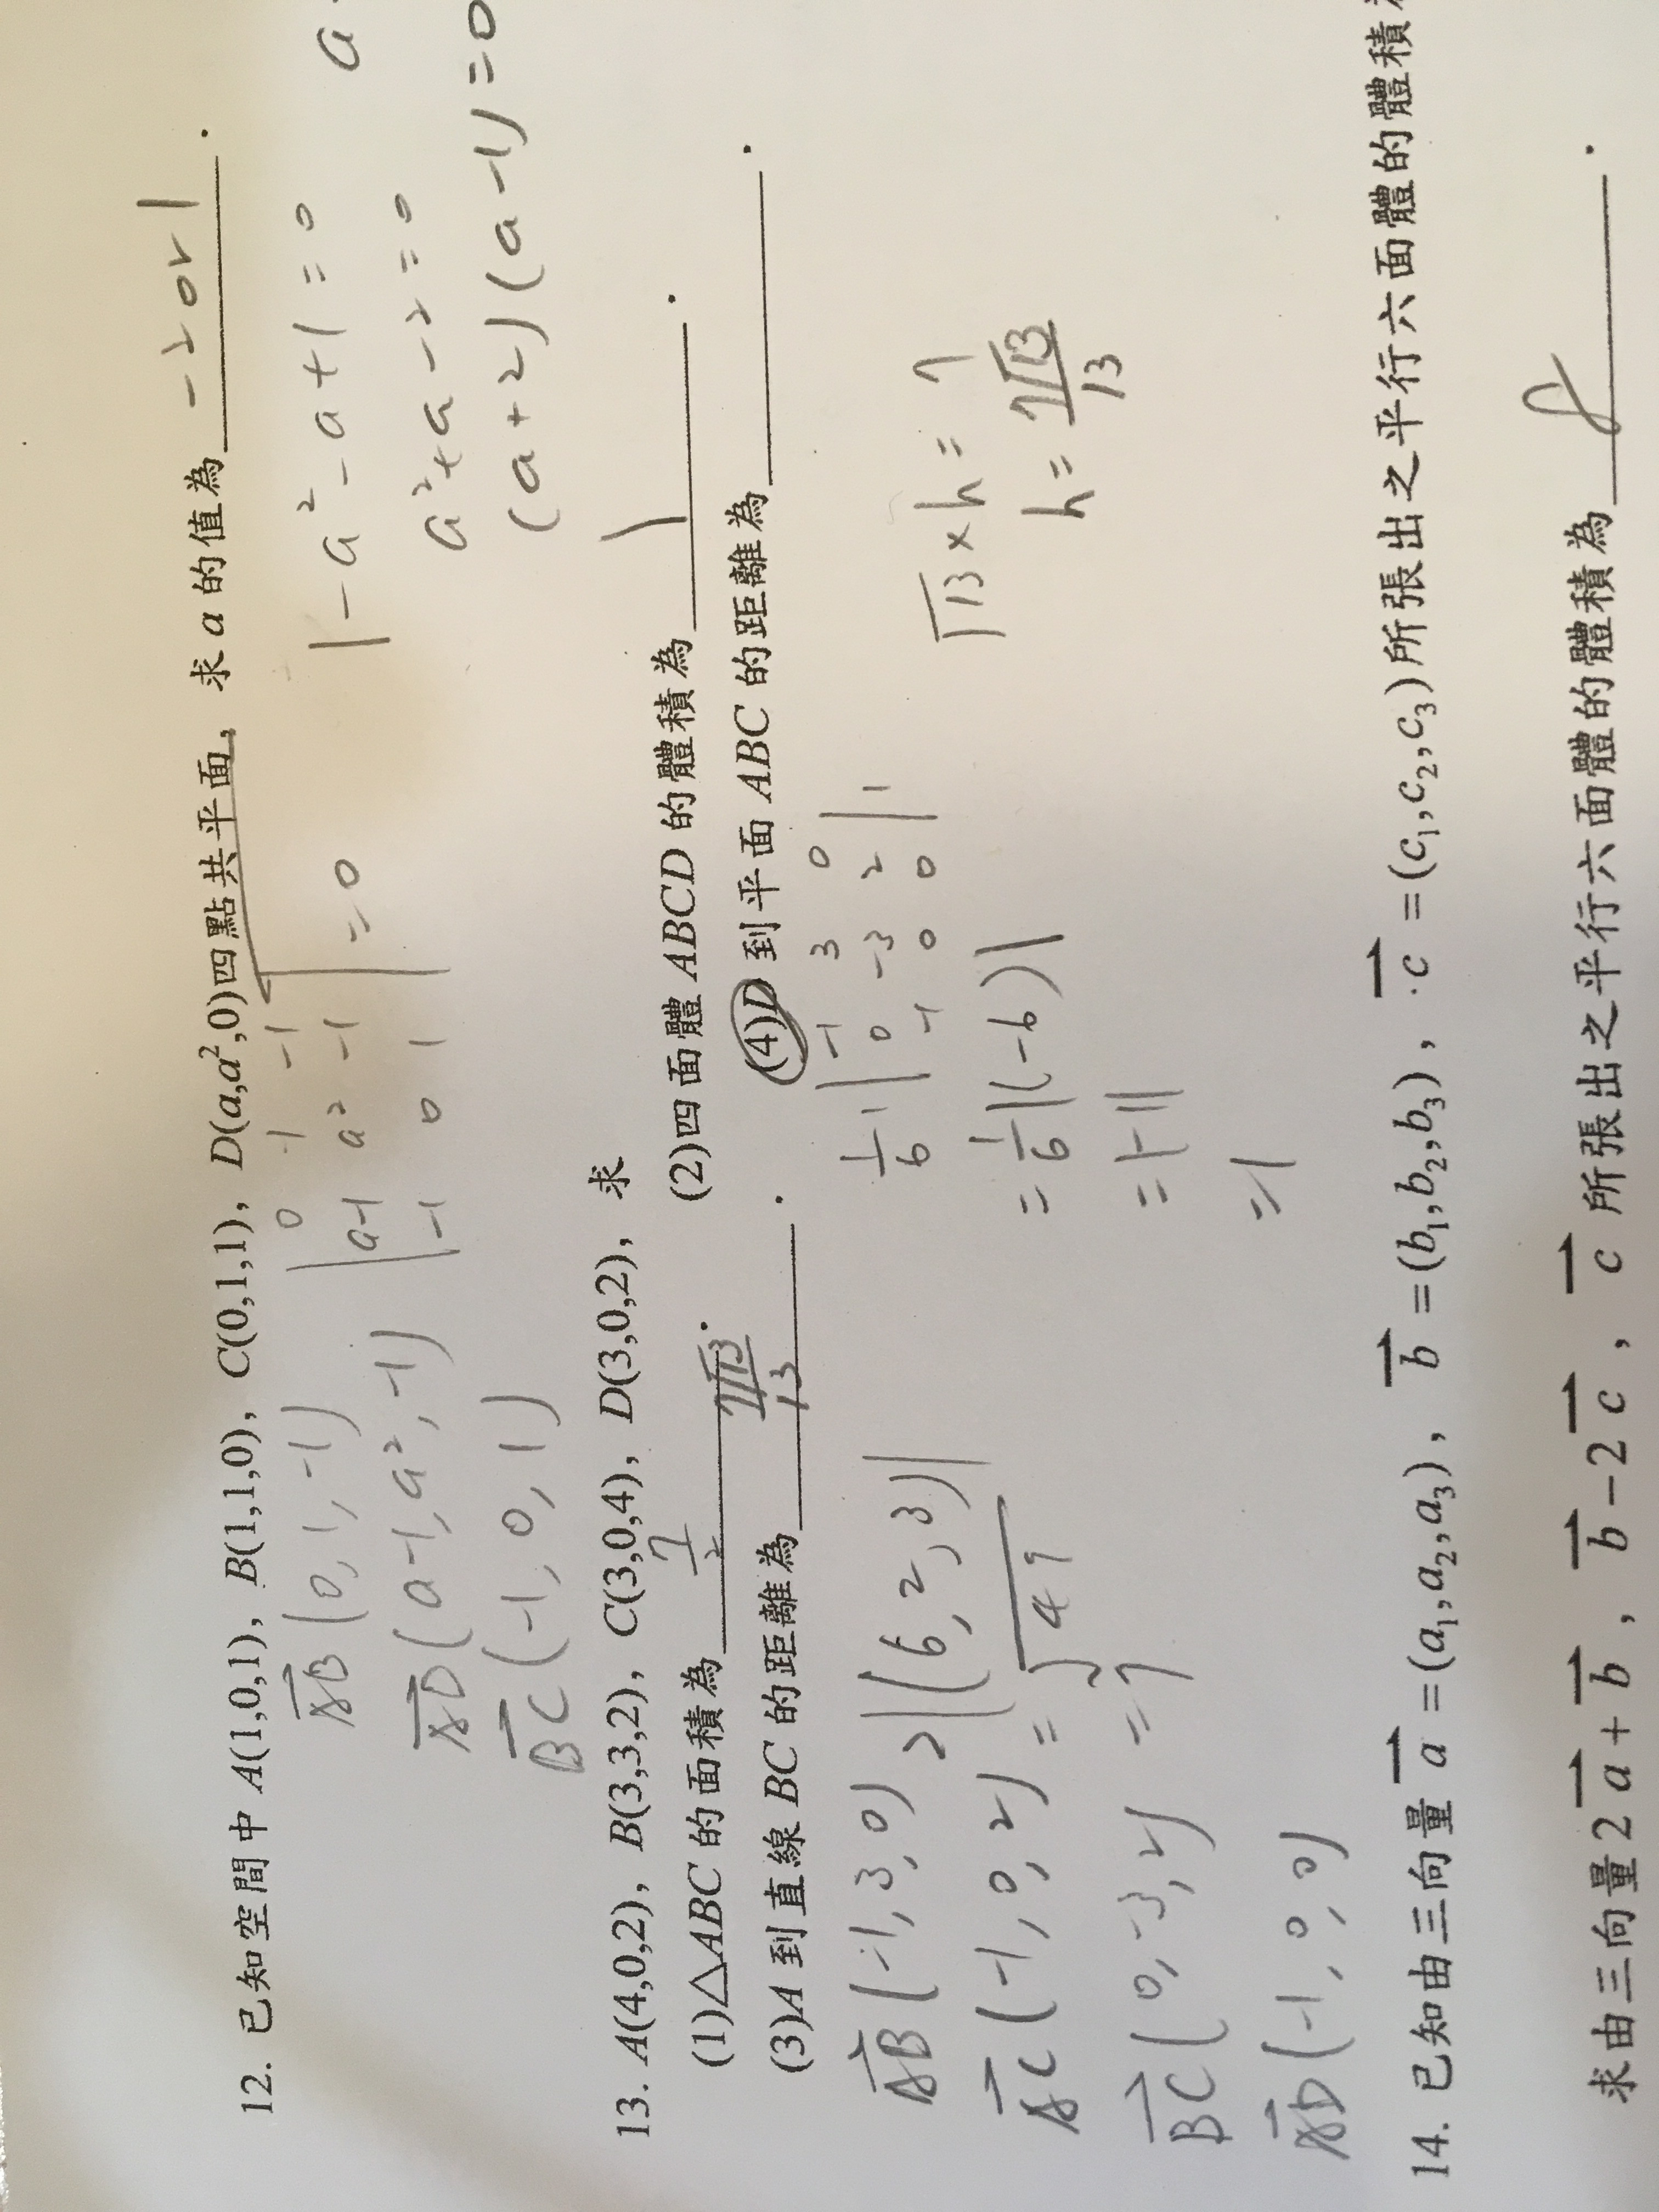 12. 已知空間中 A(1,0,1), B(1,1,0), C(0,1,1), D(a,a²,0)四點共平面, 求 a 的值為 -2 or 1 .
AB (0, 1, -1)
AD (a-1, a², -1)
BC (-1, 0, 1)
0 1 -1
a-1 a² -1
-1 0 1 = 0
1 - a² - a + 1 = 0
a² + a - 2 = 0
(a + 2) (a - 1) = 0
a
13. A(4,0,2), B(3,3,2), C(3,0,4), D(3,0,2), 求
(1)△ABC 的面積為 7/2 . (2)四面體 ABCD 的體積為 1 .
(3)A 到直線 BC 的距離為 7√13/13 . (4)D 到平面 ABC 的距離為 .
AB (-1, 3, 0)
AC (-1, 0, 2)
BC (0, -3, 2)
AD (-1, 0, 0)
|(6, 2, 3)|
= √49
= 7
1/6 | -1 3 0
0 -3 2
-1 0 0 |
= 1/6 |(-6)|
= |-1|
= 1
√13 × h = 7
h = 7√13/13
14. 已知由三向量 a =(a₁,a₂,a₃), b =(b₁,b₂,b₃), c =(c₁,c₂,c₃)所張出之平行六面體的體積
求由三向量 2a + b , b - 2c , c 所張出之平行六面體的體積為 .